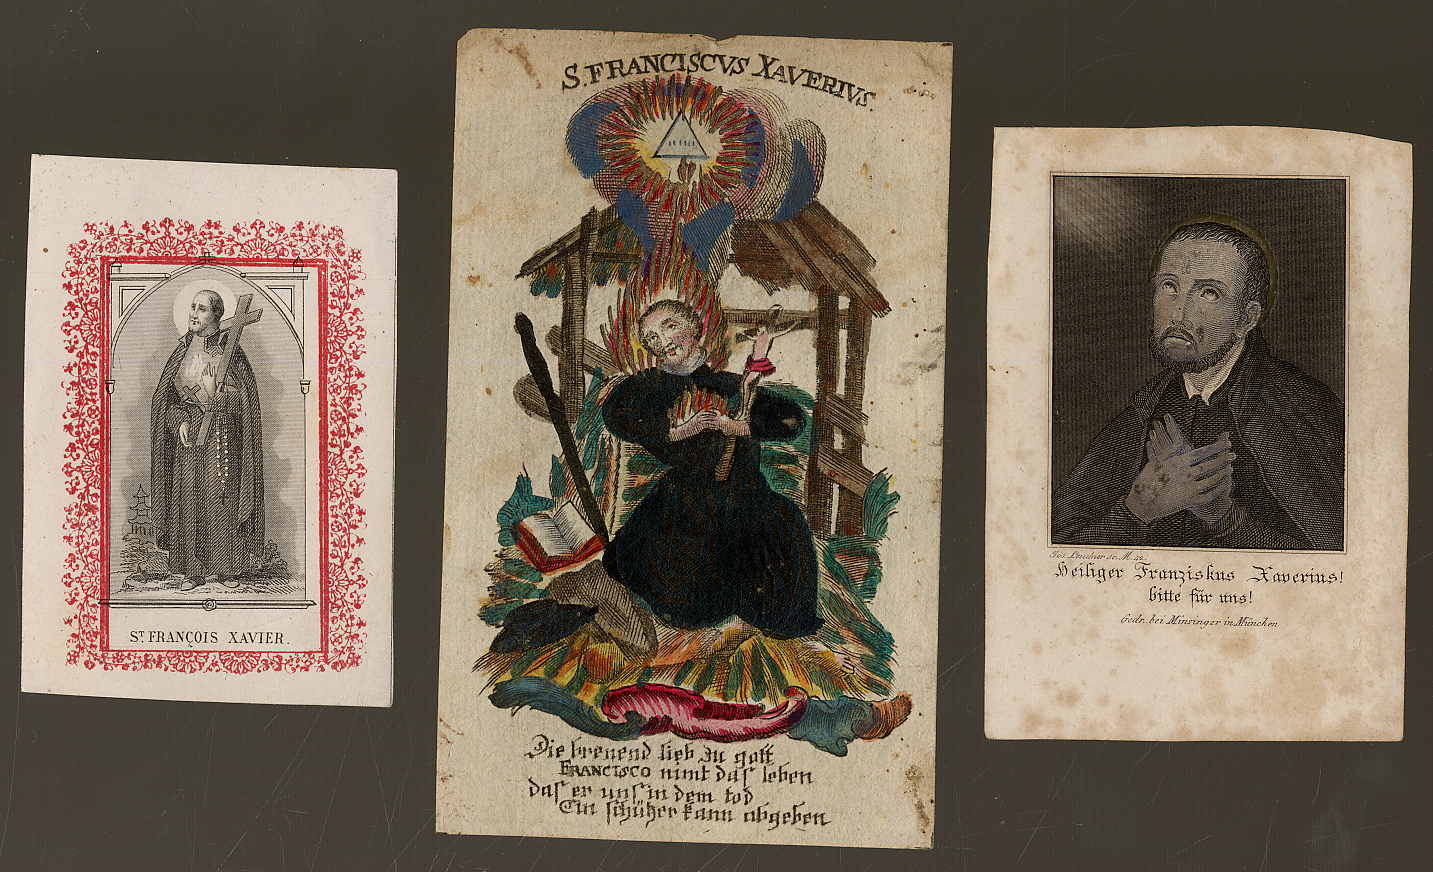 ST. FRANÇOIS XAVIER.
S. FRANCISCVS XAVERIVS.
Die brenend lieb zu gott
FRANCISCO nimt das leben
das er uns in dem tod
Ein schützer kann abgeben
Jos. Lindner sc. M.
Heiliger Franziskus Xaverius!
bitte für uns!
Gedr. bei Minsinger in München